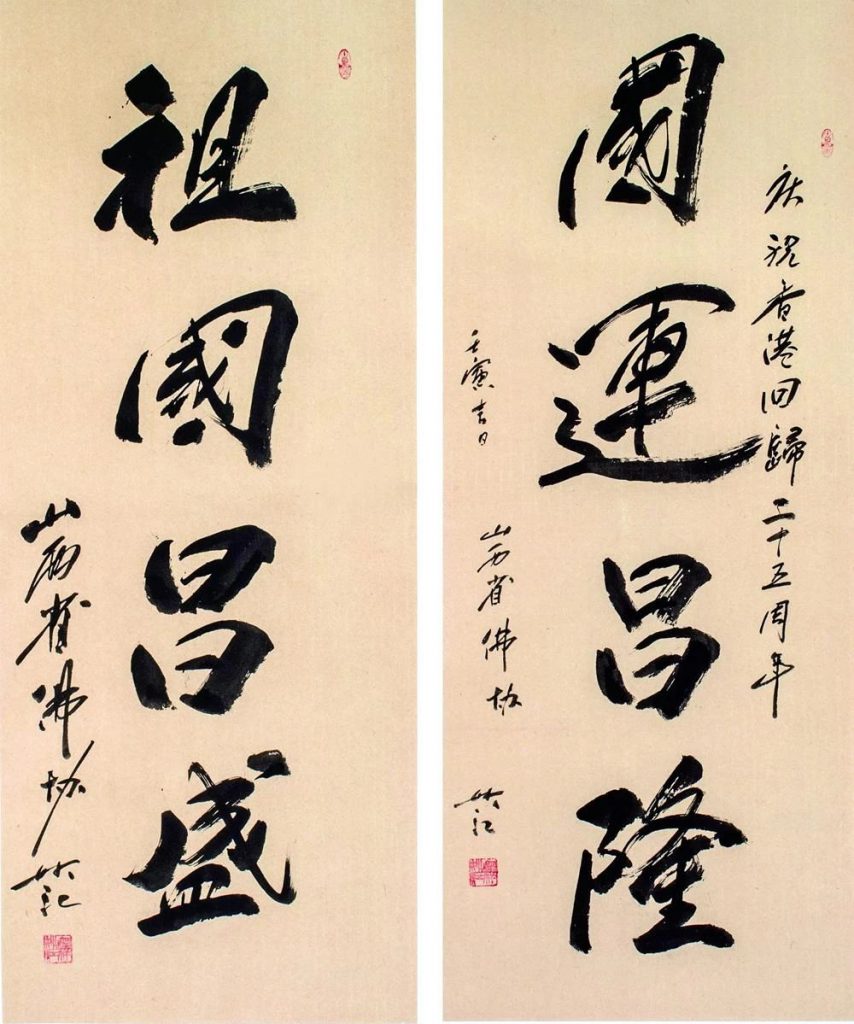 庆祝香港回歸二十五周年
國運昌隆
壬寅吉日
山西省佛协
祖國昌盛
山西省佛协